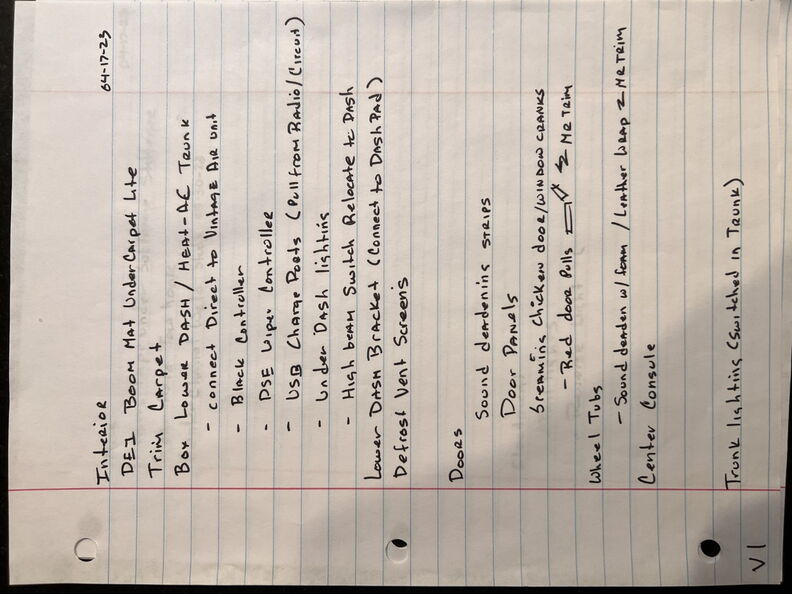 Interior 04-17-23
DEI BOOM MAT UNDER CARPET Lite
Trim Carpet
Box Lower DASH / HEAT-AC TRUNK
- connect Direct to VINTAGE AIR UNIT
- Black Controller
- DSE Wiper Controller
- USB CHARGE PORTS (Pull from RADIO/CIRCUIT)
- Under DASH lighting
- High beam Switch Relocate to DASH
Lower DASH BRACKET (Connect to DASH PAD)
Defrost Vent Screens
Doors
Sound deadening STRIPS
Door PANELS
SCREAMING Chicken door/WINDOW CRANKS
- Red door Pulls MR TRIM
Wheel Tubs
- Sound deaden w/ foam / Leather WRAP MR TRIM
Center Console
Trunk lighting (Switched in Trunk)
V1